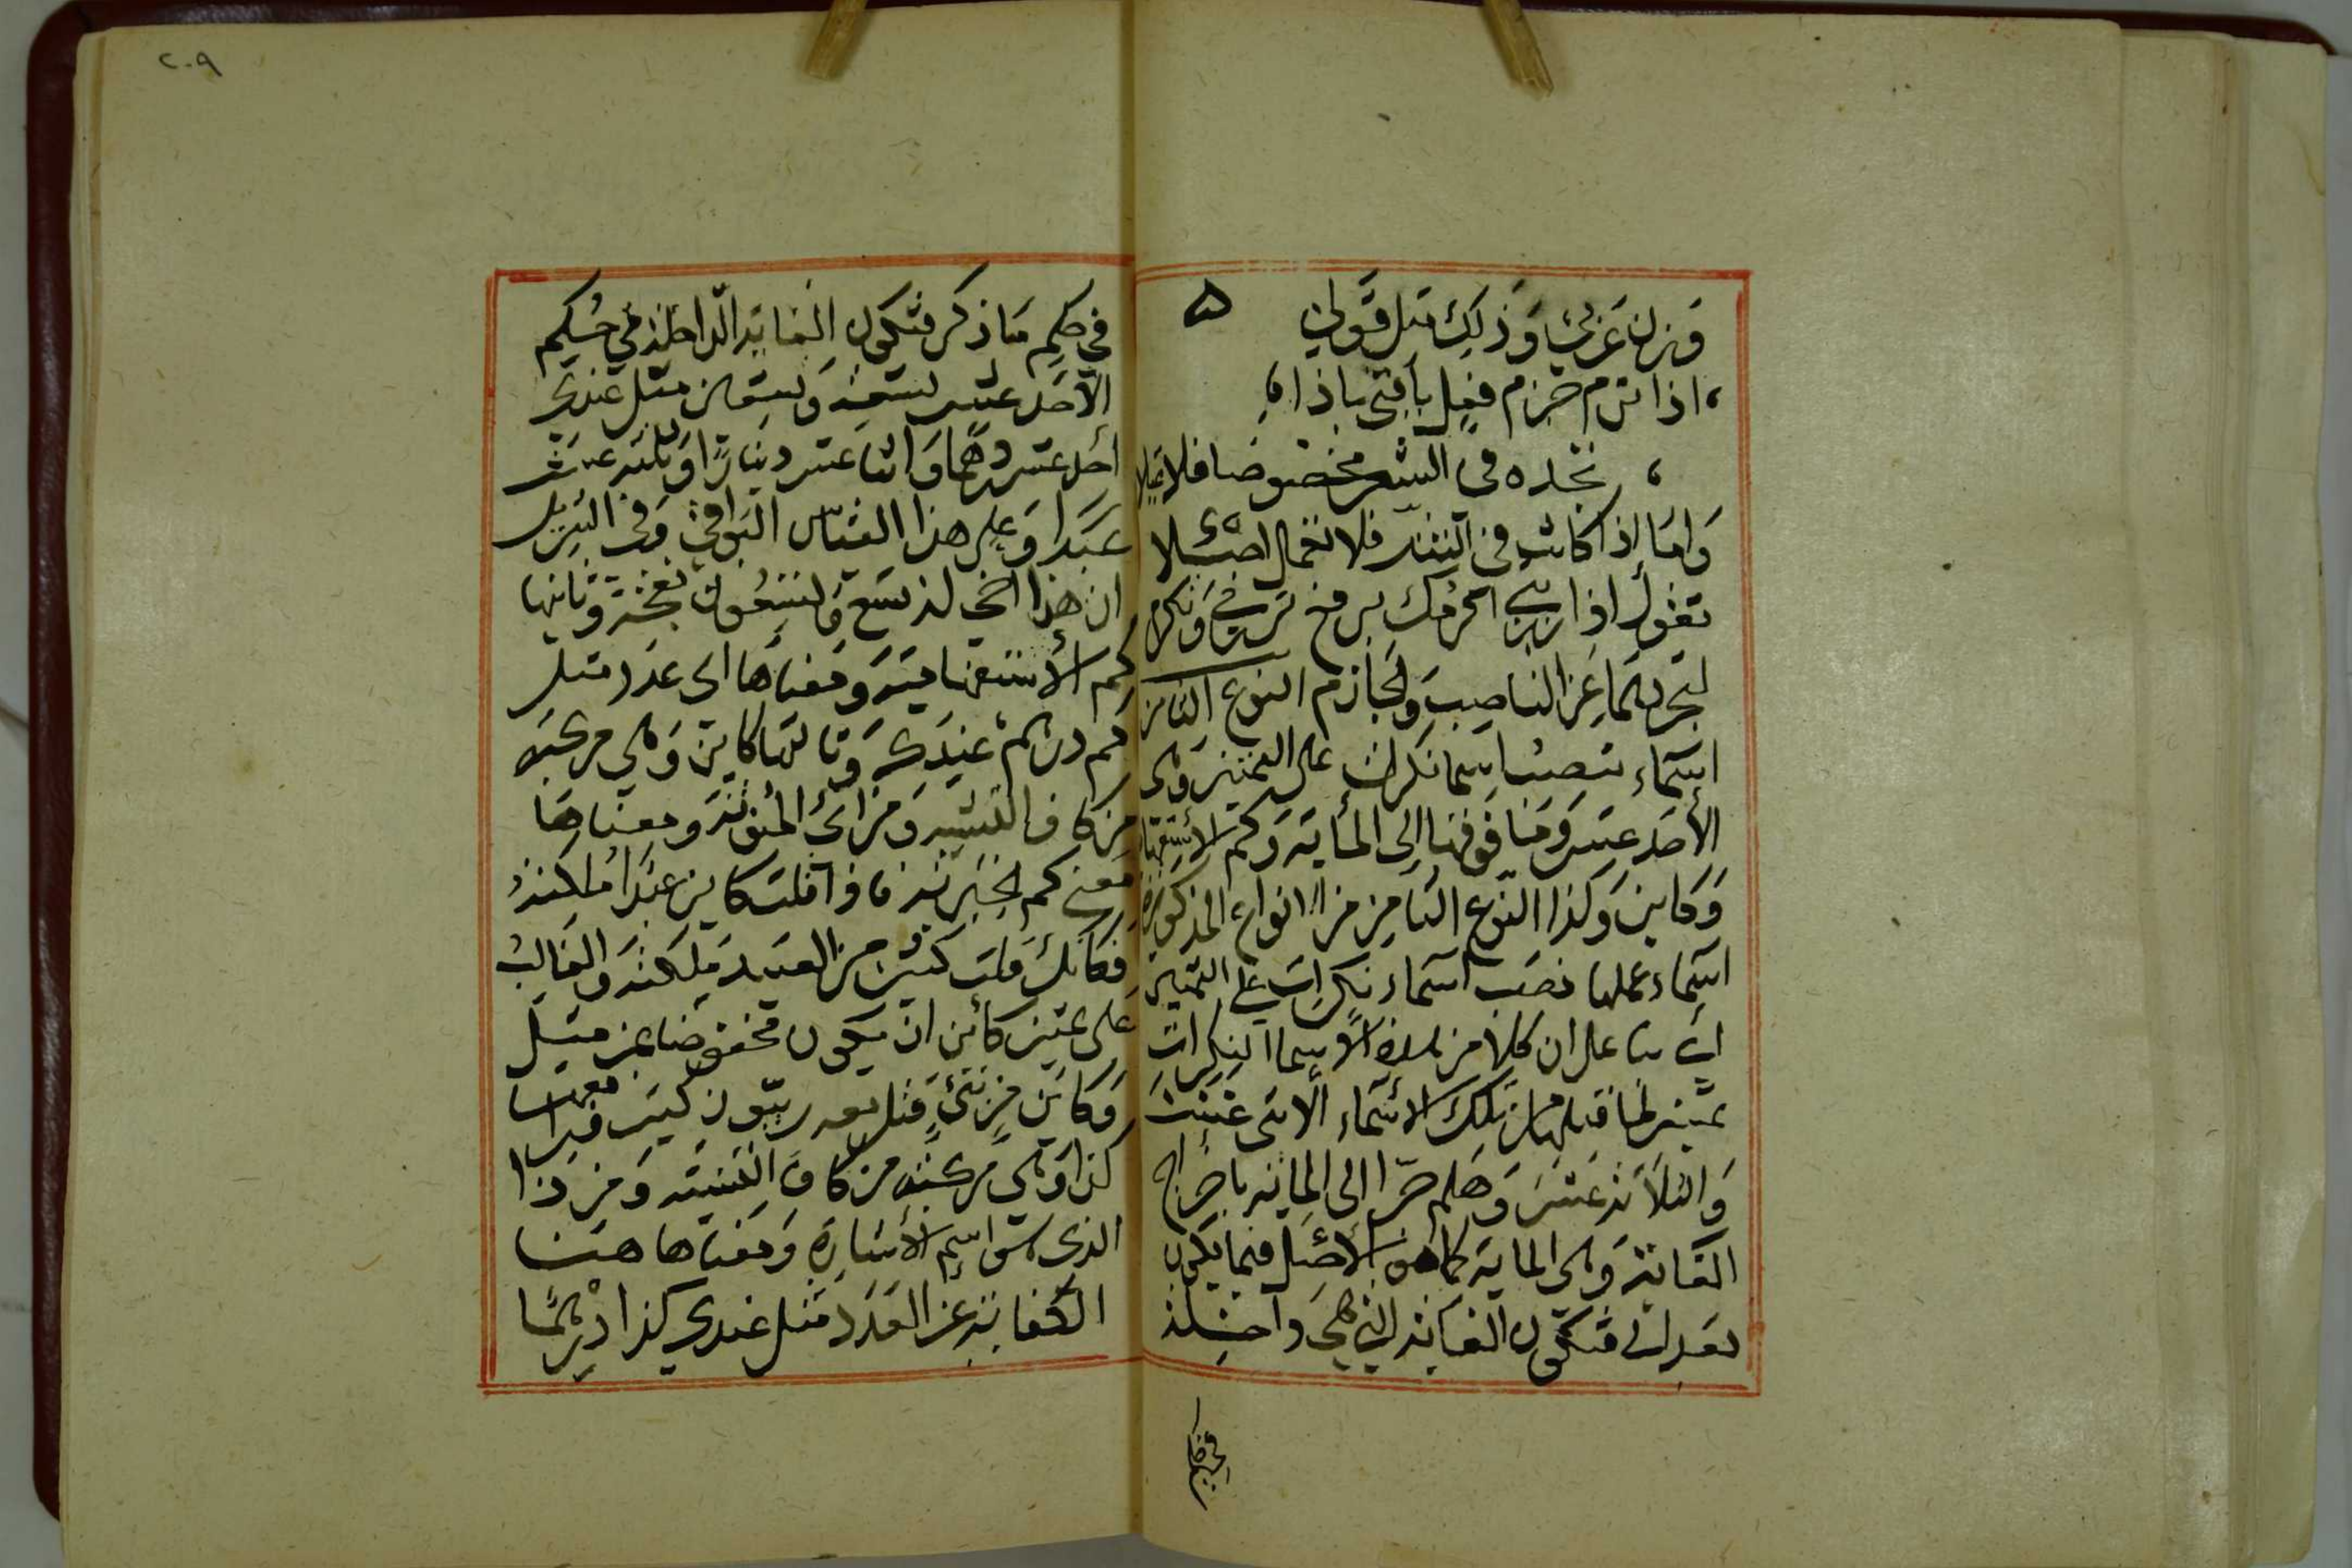 وزن عربي وذلك مثل قولي
، اذا ترم جزم فعل يا فتى باذا ،
، تجده في الشعر مخصوصا فلا
واما اذا كانت في النثر فلا تعمل اصلا
تقول اذا تزرني اكرمك برفع تزرني واكرم
لتجردهما عن الناصب والجازم النوع الثامن
اسماء تنصب اسما نكرات على التمييز وهي
الأحد عشر وما فوقها إلى المأية وكم الاستفها
وكاين وكذا النوع الثامن من الانواع المذكورة
اسماء عملها نصب اسماء نكرات على التمييز
اي بنا على ان كلا من هذه الاسما النكرات
تمييز لما قبلها من تلك الاسماء الاثنى عشر
والثلاثة عشر وهلم جرا الى الماية باخراج
الغاية وهي الماية كما هو الأصل فيما يكون
بعد الى فتكون الغاية التي هي داخلة
في حكم
٢٠٩
في حكم ما ذكر فتكون الغاية الداخلة في حكم
الأحد عشر تسعة وتسعين مثل عندي
أحد عشر درهما واثنا عشر دينارا وثلثة عشر
عبدا وعلى هذا القياس البواقي وفي التنزيل
ان هذا اخي له تسع وتسعون نعجة وثانيها
كم الأستفهامية ومعناها اي عدد مثل
كم درهم عندك وثالثها كاين وهي مركبة
من كاف التشبيه ومن اي المنونة ومعناها
معنى كم الخبرية فاذا قلت كاين عبدا ملكته
فكانك قلت كثير من العبيد ملكته والغالب
على تمييز كأين ان يكون مخفوضا بمن مثل
وكاين من نبي قتل معه ربيون كثير ورابعها
كذا وهي مركبة من كاف التشبيه ومن ذا
الذي هو اسم الأشارة ومعناها هنا
الكناية عن العدد مثل عندي كذا درهما